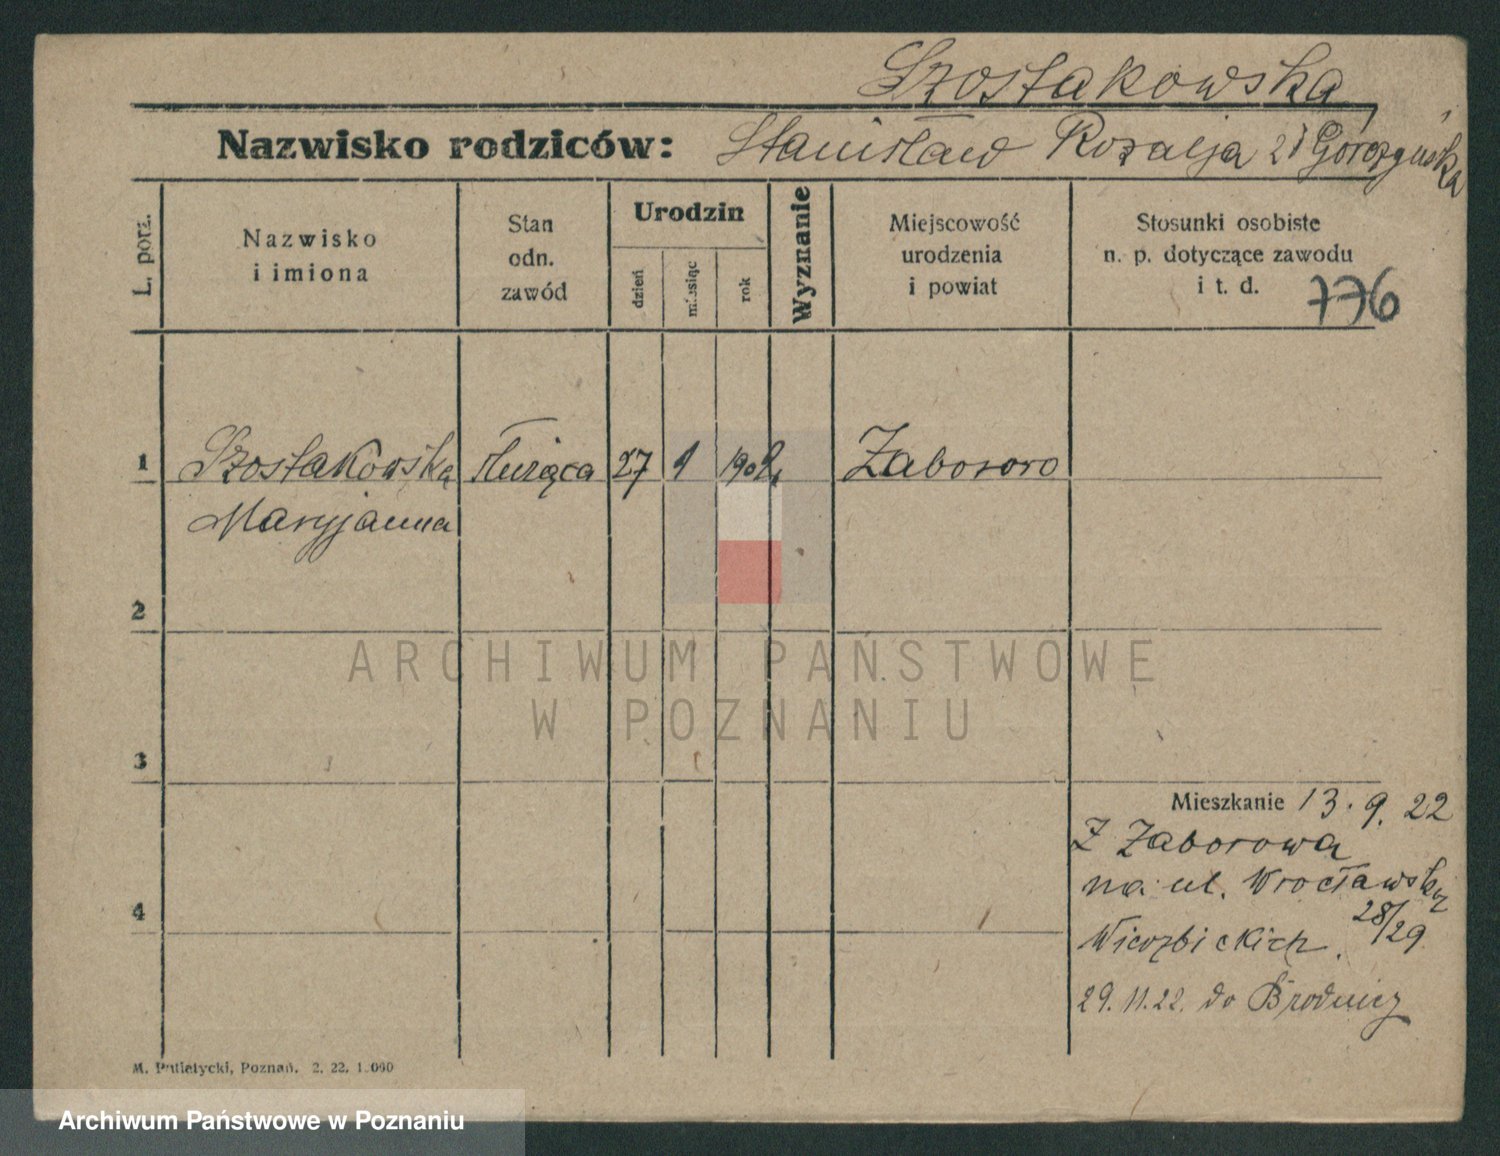 Szostakowska
Nazwisko rodziców: Stanisław Rozalja zd Gorczyńska
L. porz.
Nazwisko
i imiona
Stan
odn.
zawód
Urodzin
dzień
miesiąc
rok
Wyznanie
Miejscowość
urodzenia
i powiat
Stosunki osobiste
n. p. dotyczące zawodu
i t. d.
776
1 Szostakowska służąca 27 1 1902 Zaborowo
Maryjanna
2
3
4
Mieszkanie 13. 9. 22
Z Zaborowa
na ul. Wrocławską
28/29
29. 11. 22. do Brodnicy
M. Putiatycki, Poznań. 2. 22. 1.000
ARCHIWUM PAŃSTWOWE
W POZNANIU
Archiwum Państwowe w Poznaniu